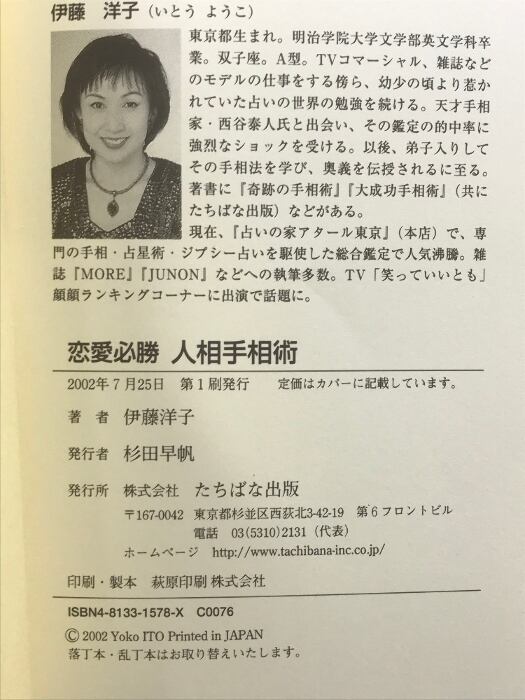 伊藤 洋子(いとう ようこ)
東京都生まれ。明治学院大学文学部英文学科卒
業。双子座。A型。TVコマーシャル、雑誌など
のモデルの仕事をする傍ら、幼少の頃より惹か
れていた占いの世界の勉強を続ける。天才手相
家・西谷泰人氏と出会い、その鑑定の的中率に
強烈なショックを受ける。以後、弟子入りして
その手相法を学び、奥義を伝授されるに至る。
著書に『奇跡の手相術』『大成功手相術』(共に
たちばな出版)などがある。
現在、『占いの家アタール東京』(本店)で、専
門の手相・占星術・ジプシー占いを駆使した総合鑑定で人気沸騰。雑
誌『MORE』『JUNON』などへの執筆多数。TV「笑っていいとも」
顔顔ランキングコーナーに出演で話題に。
恋愛必勝 人相手相術
2002年7月25日 第1刷発行 定価はカバーに記載しています。
著 者 伊藤洋子
発行者 杉田早帆
発行所 株式会社 たちばな出版
〒167-0042 東京都杉並区西荻北3-42-19 第6フロントビル
電話 03(5310)2131(代表)
ホームページ http://www.tachibana-inc.co.jp/
印刷・製本 萩原印刷株式会社
ISBN4-8133-1578-X C0076
© 2002 Yoko ITO Printed in JAPAN
落丁本・乱丁本はお取り替えいたします。